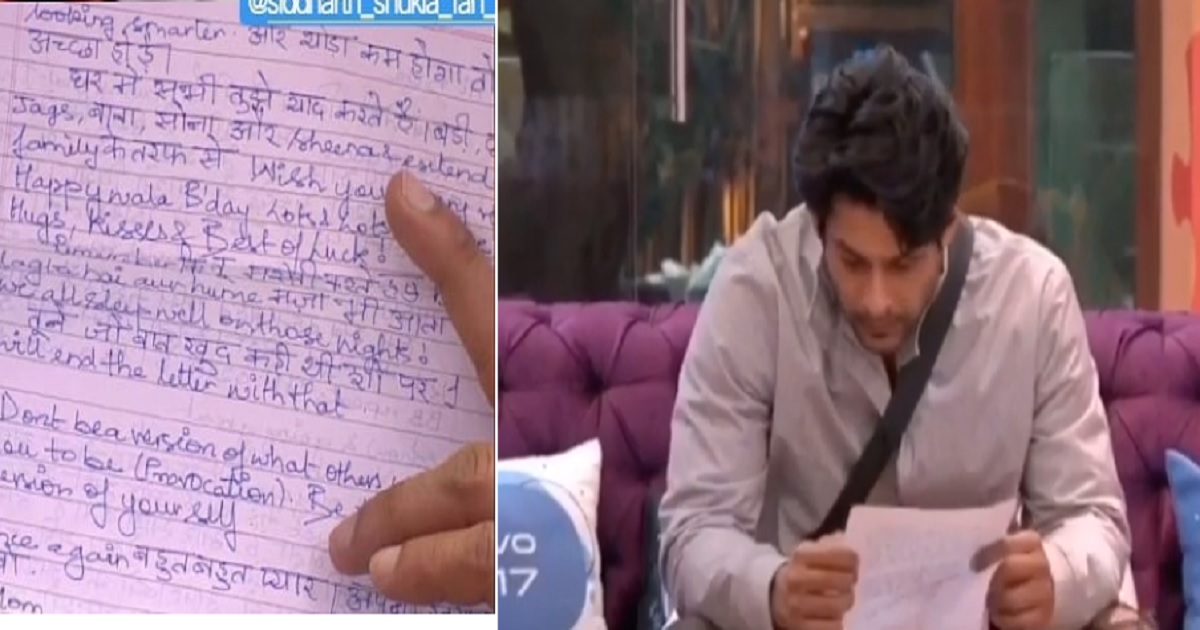 @siddharth_shukla_fan_
looking smarter. और थोड़ा कम होगा तो
अच्छा
घर में सभी तुझे याद करते हैं। बड़ी,
Jags, बाबा, सोना और Sheena & extend
family के तरफ से Wish you
Happy wala B'day Lots & Lots
Hugs, Kisses & Best of Luck!
Remember कि
lagta hai aur hume मज़ा भी आता
we all sleep well on those nights!
तूने जो बात खुद कही थी पर I
will end the letter with that
Dont be a version of what others
you to be (Provocation). Be
version of yourself
once again बहुत बहुत प्यार
Mom
vo
17